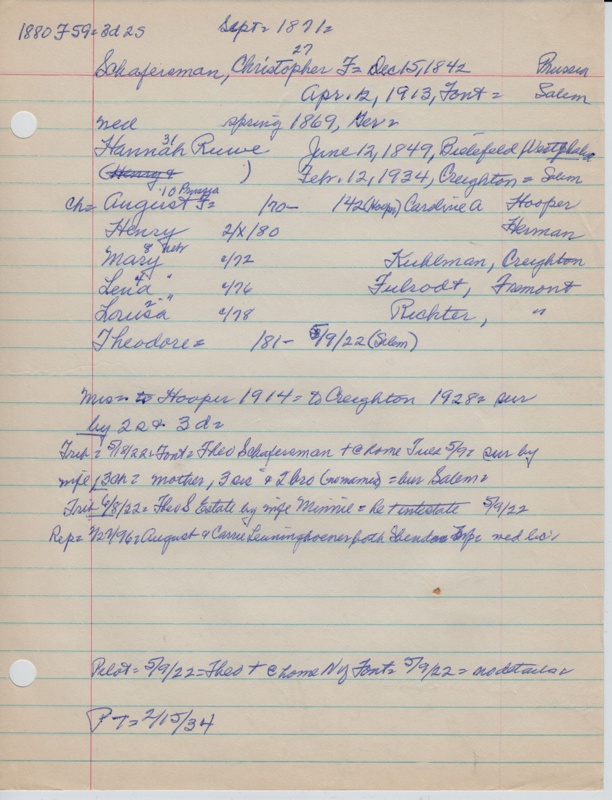 1880 F 59 = 3d 2s Sept = 1871 =
27
Schafersman, Christopher F = Dec 15, 1842 Prussia
Apr. 12, 1913, Font = Salem
wed spring 1869, Ger =
31
Hannah Ruwe June 12, 1849, Bielefeld, Westphalia
(Henry & ) Feb. 12, 1934, Creighton = Salem
10 Prussia
ch = August F = /70 - 142 (Hooper) Caroline A Hooper
Henry 2/x/80 Herman
8 Nebr
Mary c/72 Kuhlman, Creighton
4 "
Lena c/76 Fulrodt, Fremont
2 - "
Louisa c/78 Richter, "
Theodore = /81 - 5/9/22 (Salem)
Mrs = to Hooper 1914 = to Creighton 1928 = sur
by 2s & 3d =
Trib = 5/18/22 = Font = Theo Schafersman + @ home Tues 5/9 = sur by
wife, 3 ch = mother, 3 sis & 2 bro (no names) = bur Salem =
Trib 6/8/22 = Theo S Estate by wife Minnie = he + intestate 5/9/22
Rep = 2/27/96 = August & Carrie Leuninghoener both Sheridan Twp = wed lic's
Pilot = 5/9/22 = Theo + @ home N of Font = 5/9/22 = no details
P T = 2/15/34